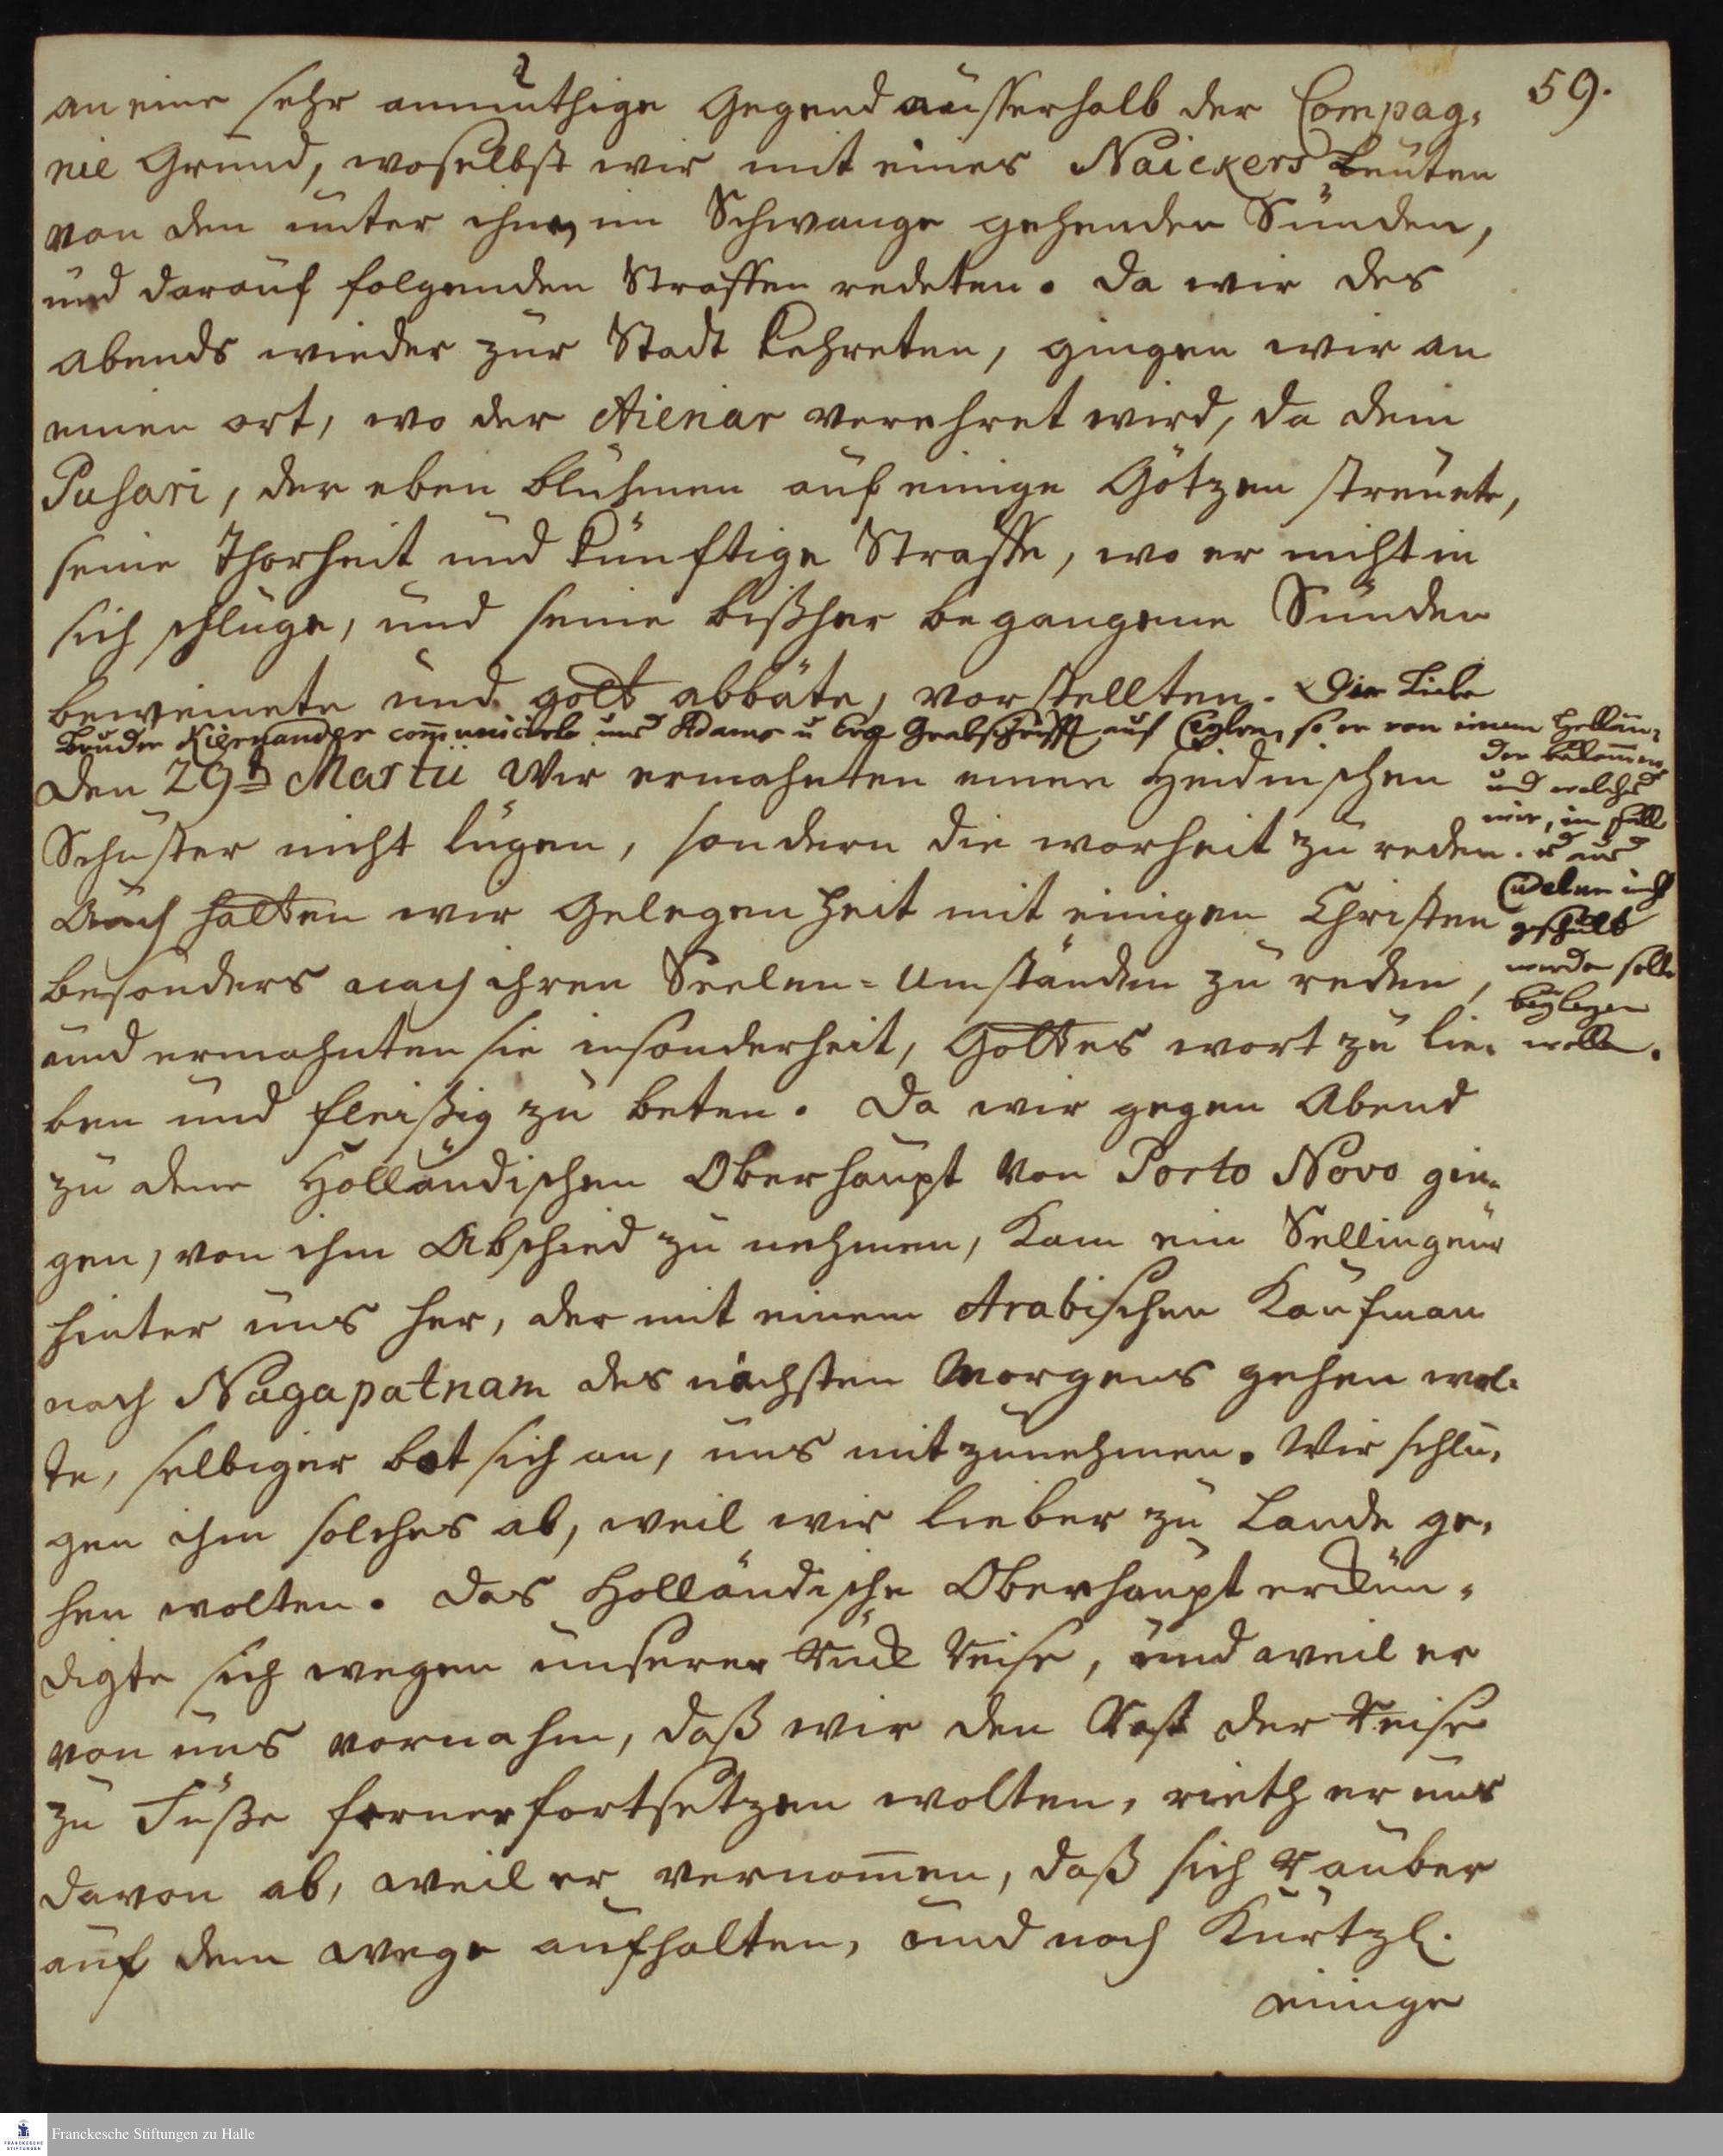 59.
an eine sehr anmuthige Gegend ausserhalb der Compag-
nie Grund, woselbst wir mit eines Naickers Leuten
von den unter ihnen im Schwange gehenden Sünden,
und darauf folgenden Straffen redeten. Da wir des
Abends wieder zur Stadt kehreten, gingen wir an
einen ort, wo der Aienar verehret wird, da dem
Pusari, der eben Bluhmen auf einige Götzen streuete,
seine Thorheit und künftige Straffe, wo er nicht in
sich schluge, und seine bißher begangene Sünden
beweinete und gott abbäte, vorstellten. Der Liebe
Bruder Kiernander com̅unicirte uns Adams u Grabschrifft auf Ceylon, so er von einem Hollän-
der bekom̅en,
und welches
wir, im fall
es aus
Cudelur nicht
geschickt
werden solte
beylegen
wollen.
Den 29t Martii Wir ermahnten einen Heidnischen
Schuster nicht lügen, sondern die warheit zu reden.
Auch hatten wir Gelegenheit mit einigen Christen
besonders nach ihren Seelen-Umständen zu reden,
und ermahnten sie insonderheit, Gottes wort zu lie-
ben und fleißig zu beten. Da wir gegen Abend
zu dem Holländischen Oberhaupt von Porto Novo gin-
gen, von ihm Abschied zu nehmen, kam ein Sellingeur
hinter uns her, der mit einem Arabischen Kaufman
nach Nagapatnam des nächsten Morgens gehen wol-
te, selbiger bot sich an, uns mitzunehmen. Wir schlu-
gen ihm solches ab, weil wir lieber zu Lande ge-
hen wolten. Das Holländische Oberhaupt erkün-
digte sich wegen unserer Rück Reise, und weil er
von uns vernahm, daß wir den Rest der Reise
zu Fuße ferner fortsetzen wolten, rieth er uns
davon ab, weil er vernom̅en, daß sich Räuber
auf dem Wege aufhalten, und noch kürtzl.
einige
Franckesche Stiftungen zu Halle